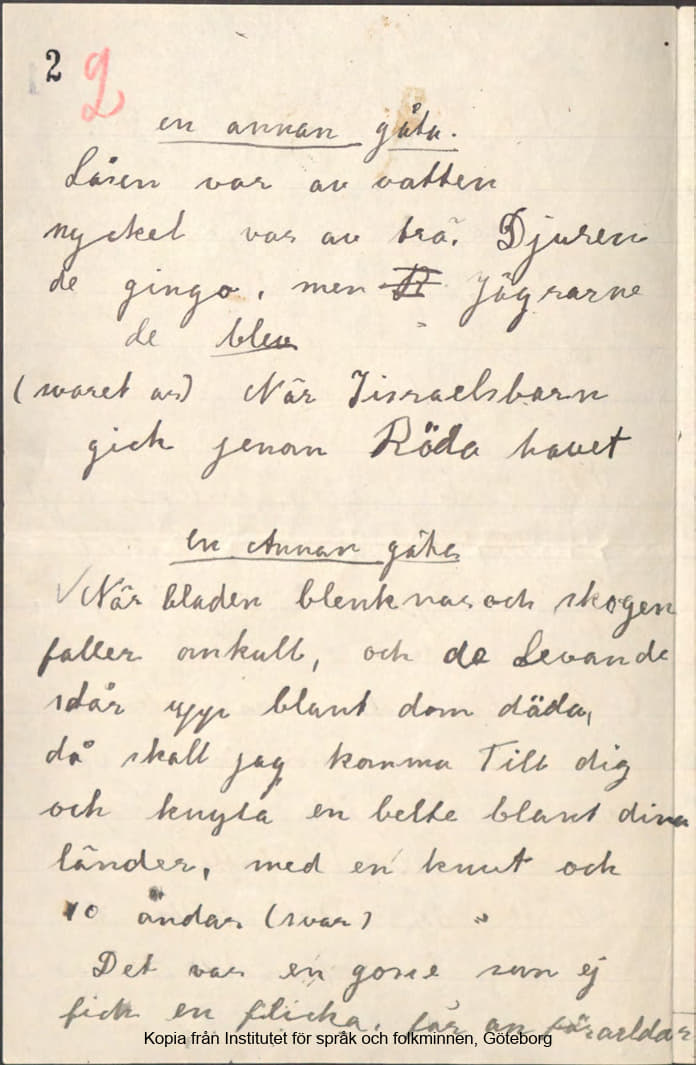 2 2
en annan gåta.
Låsen var av vatten
nyckel var av trä. Djuren
de gingo, men Jägrarne
de blev
(svaret är) När Jisraelsbarn
gick jenom Röda havet
en Annan gåta
När bladen blenknar och skogen
faller omkull, och de Levande
står upp blant dom döda,
då skall jag komma Till dig
och knyta en belte blant dina
länder, med en knut och
10 ändar (svar)
Det var en gosse som ej
fick en flicka, för an förarldar
Kopia från Institutet för språk och folkminnen, Göteborg